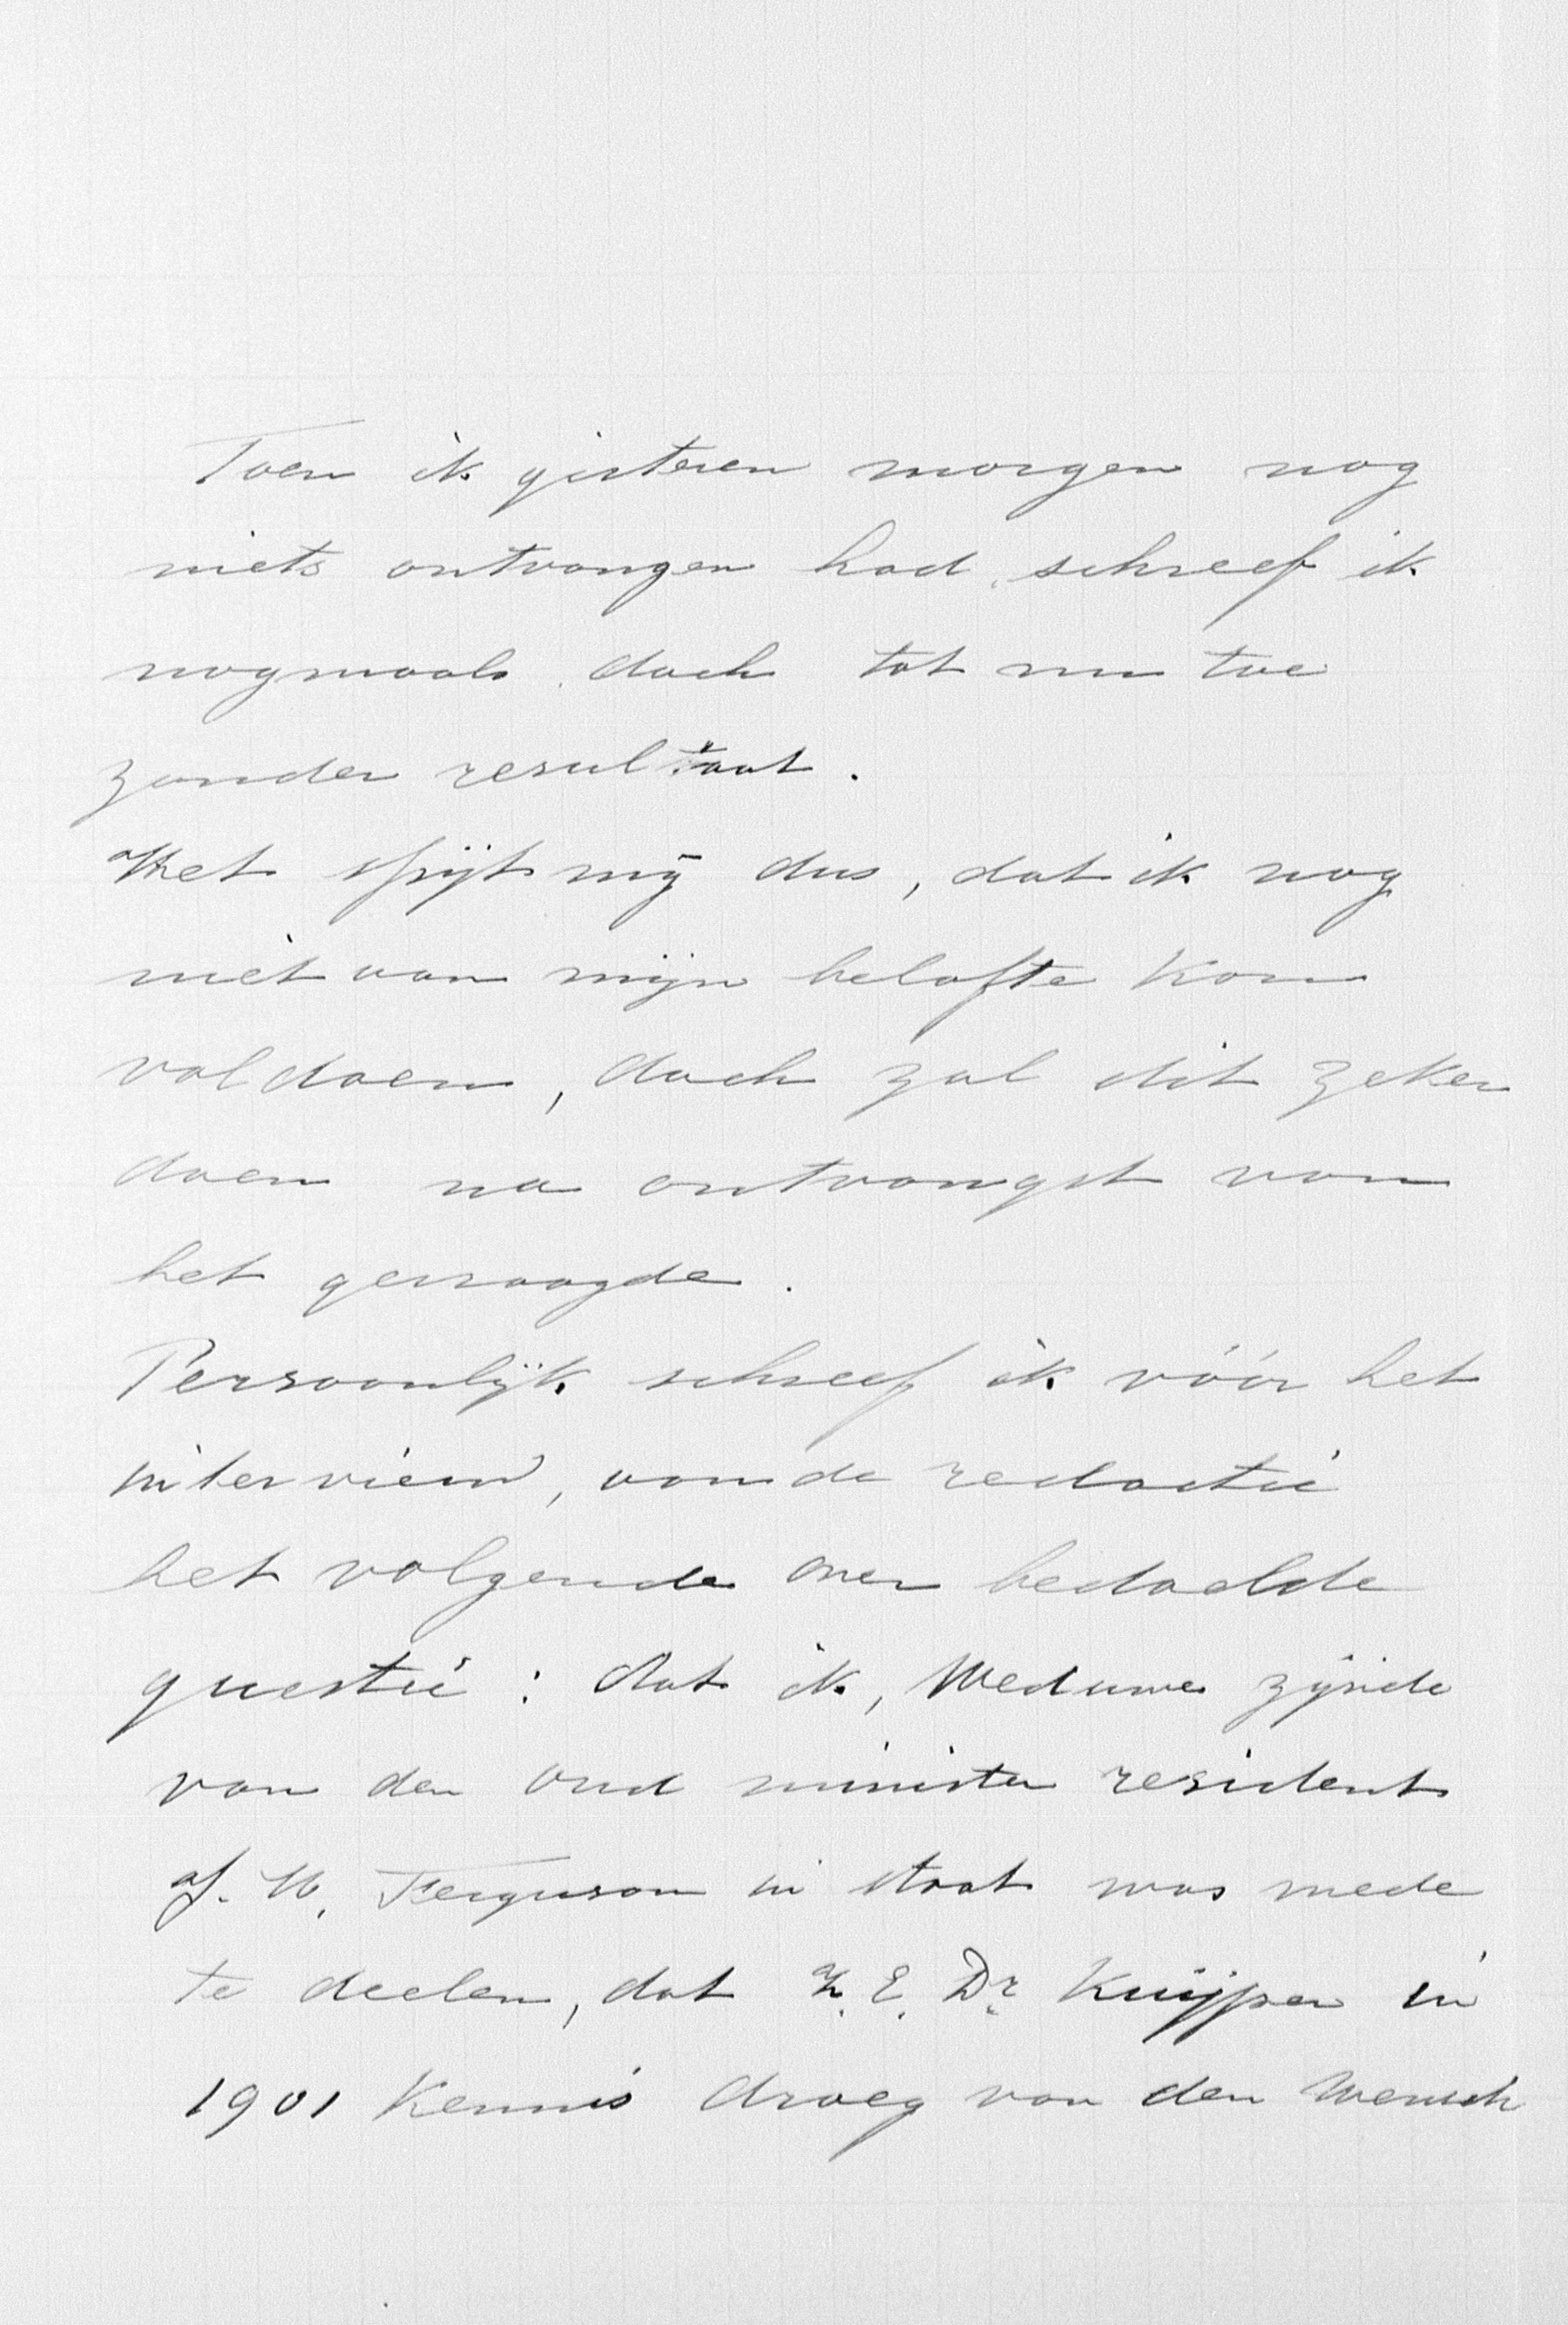 Toen ik gisteren morgen nog
niets ontvangen had, schreef ik
nogmaals, doch tot nu toe
zonder resultaat.
Het spijt mij dus, dat ik nog
niet aan mijn belofte kon
voldoen, doch zal dit zeker
doen na ontvangst van
het gevraagde.
Persoonlijk schreef ik vóór het
interview, aan de redactie
het volgende over bedoelde
questie: dat ik, Weduwe zijnde
van den oud minister resident
J. H. Ferguson in staat was mede
te deelen, dat Z. E. Dr Kuijper in
1901 kennis droeg van den wensch